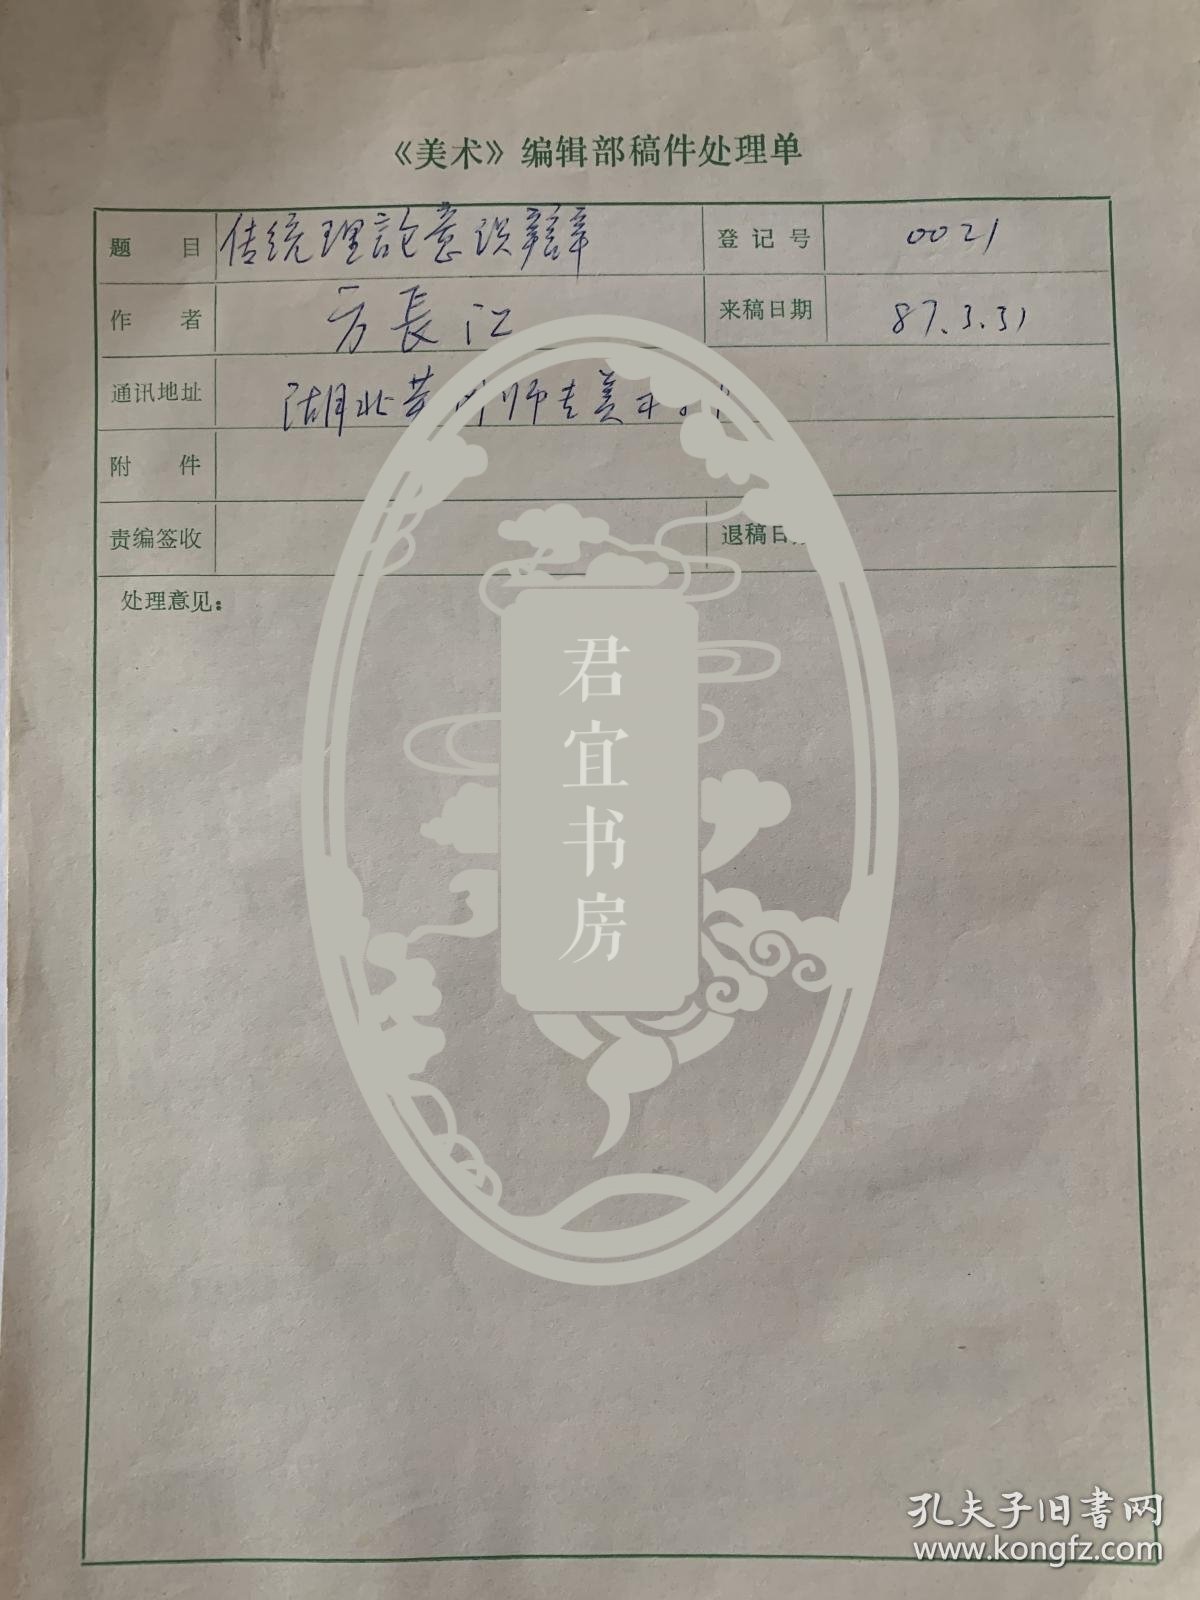 《美术》编辑部稿件处理单
题目 传统理論意识辯 登记号 0021
作者 方長江 来稿日期 87.3.31
通讯地址 湖北黄 师专美术
附件
责编签收 退稿日
处理意见：
君宜书房
孔夫子旧書网
www.kongfz.com